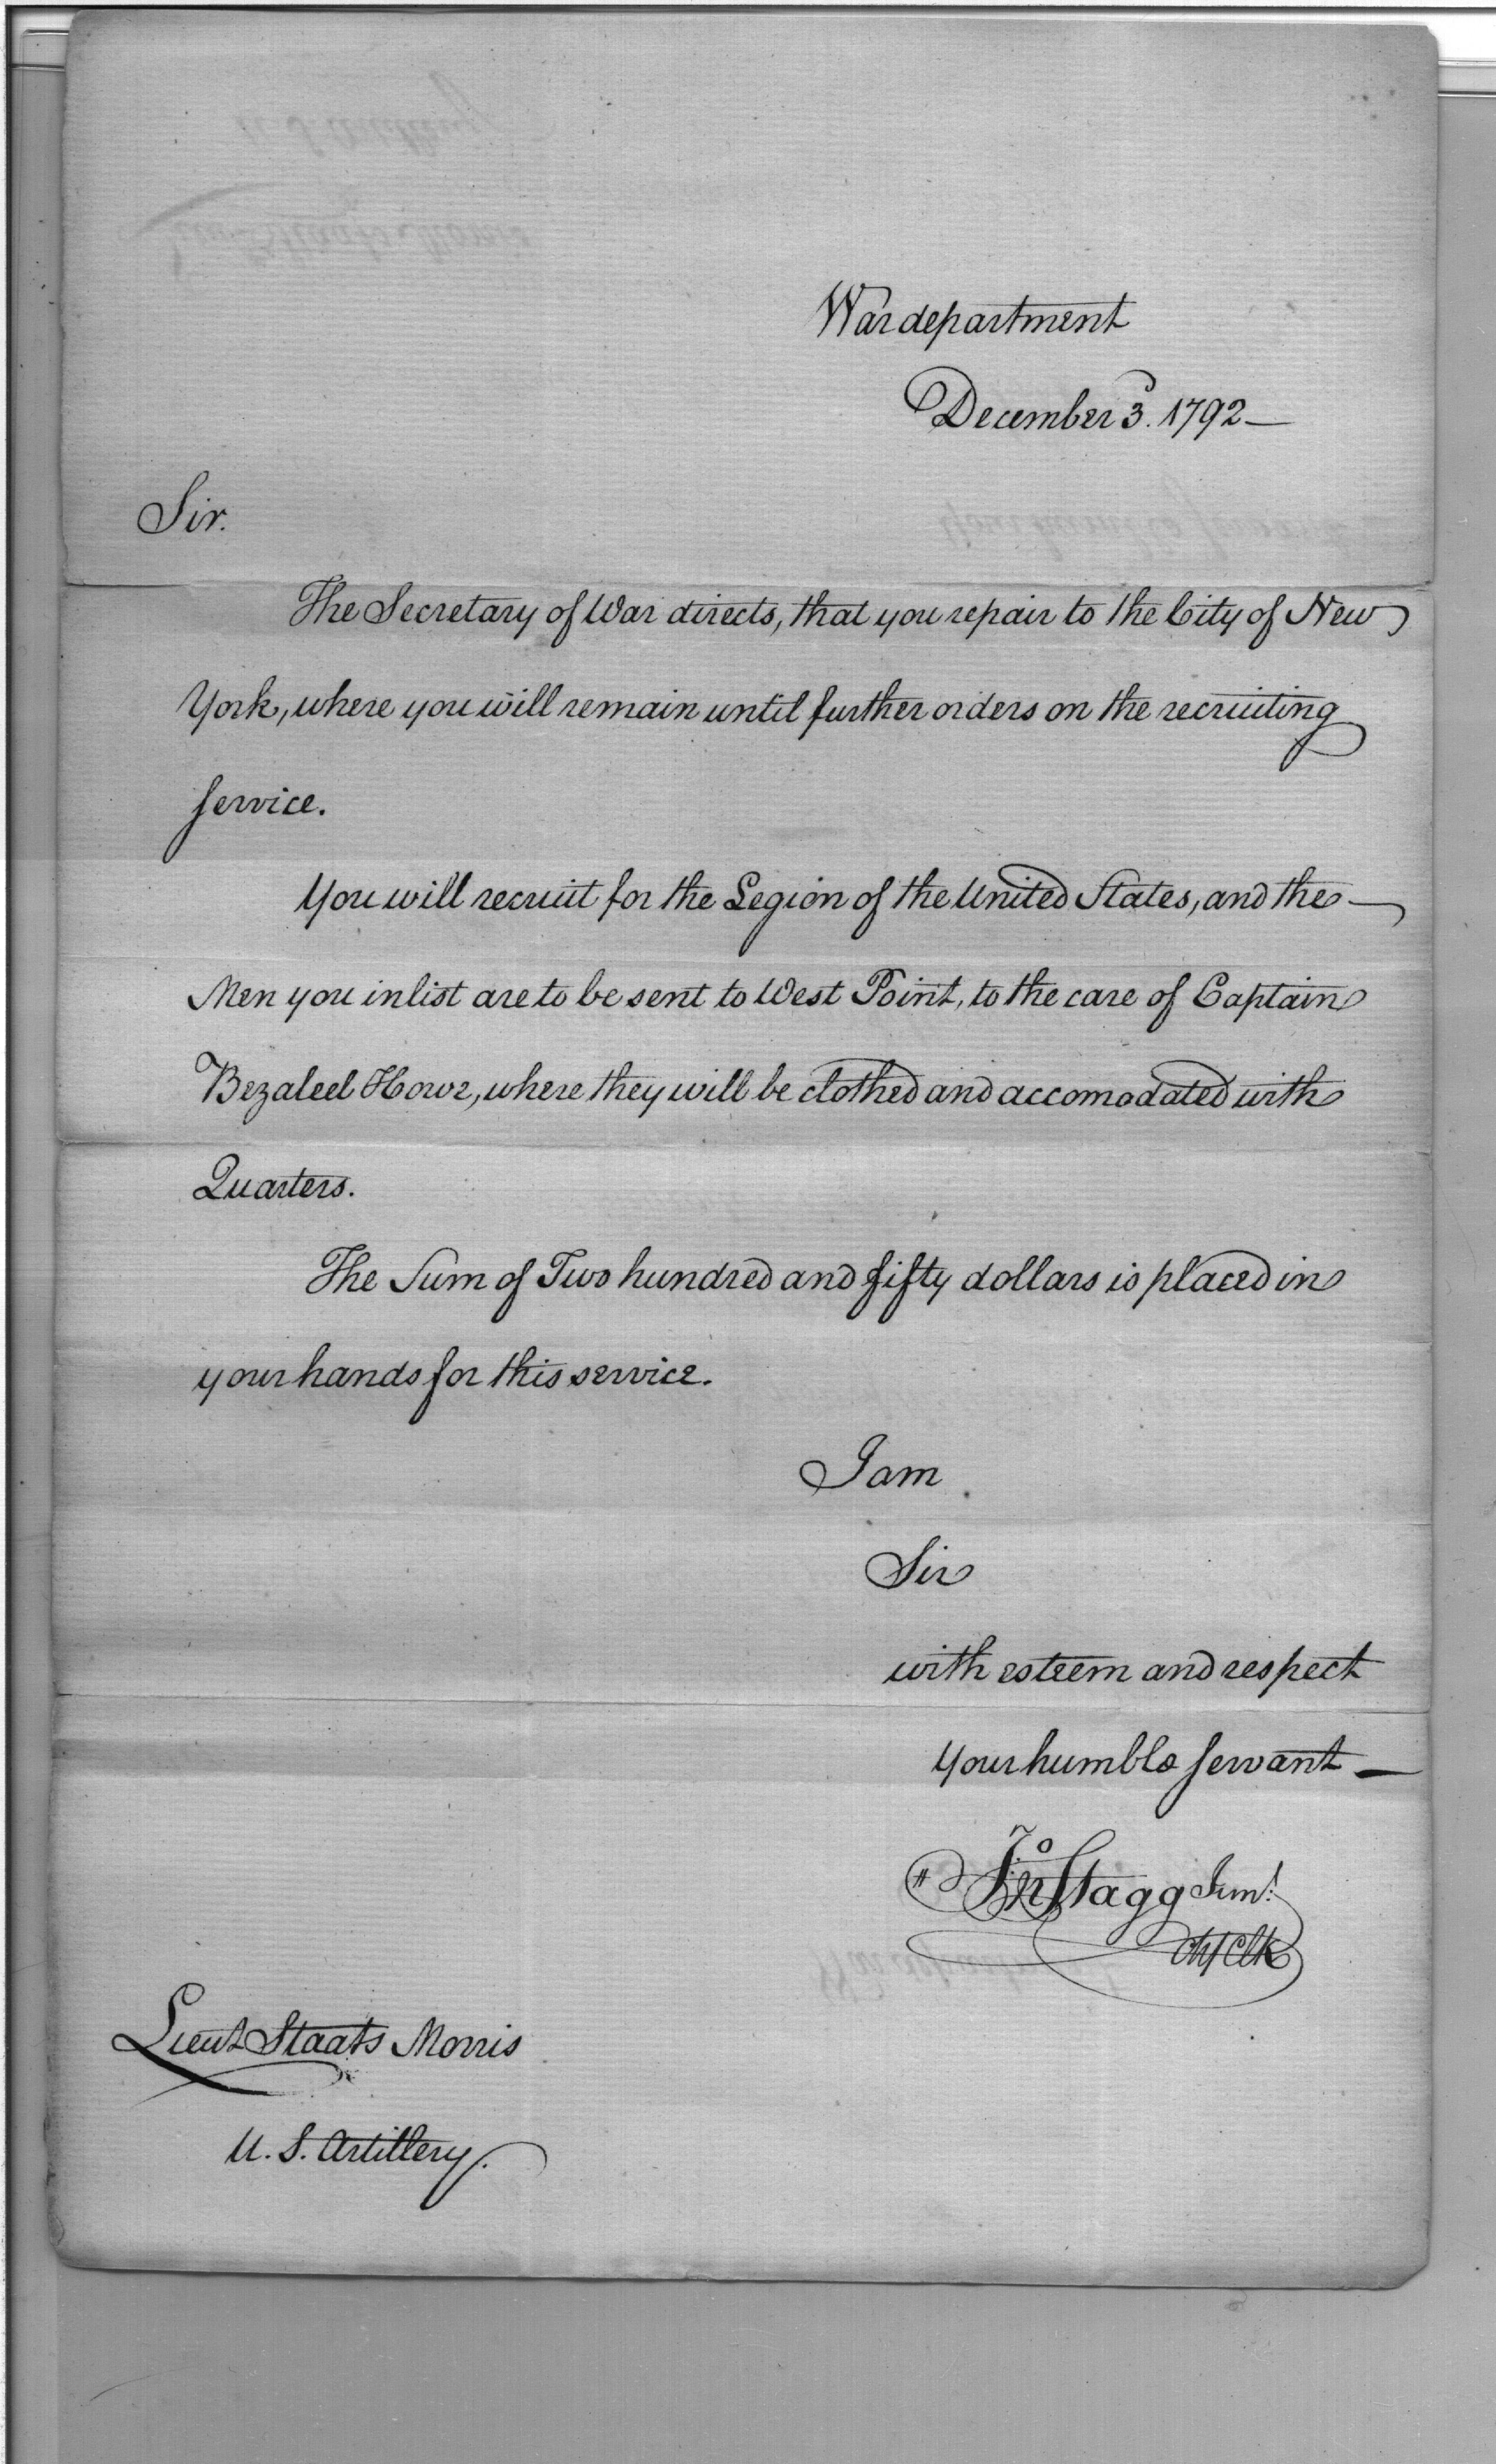 War department
December 3. 1792 —
Sir.
The Secretary of War directs, that you repair to the City of New
York, where you will remain until further orders on the recruiting
service.
You will recruit for the Legion of the United States, and the —
Men you inlist are to be sent to West Point, to the care of Captain
Bezaleel Howe, where they will be clothed and accomodated with
Quarters.
The Sum of Two hundred and fifty dollars is placed in
your hands for this service.
I am
Sir
with esteem and respect
Your humble servant —
Jno Stagg Junr.
Chf Clk
Lieut Staats Morris
U. S. Artillery.